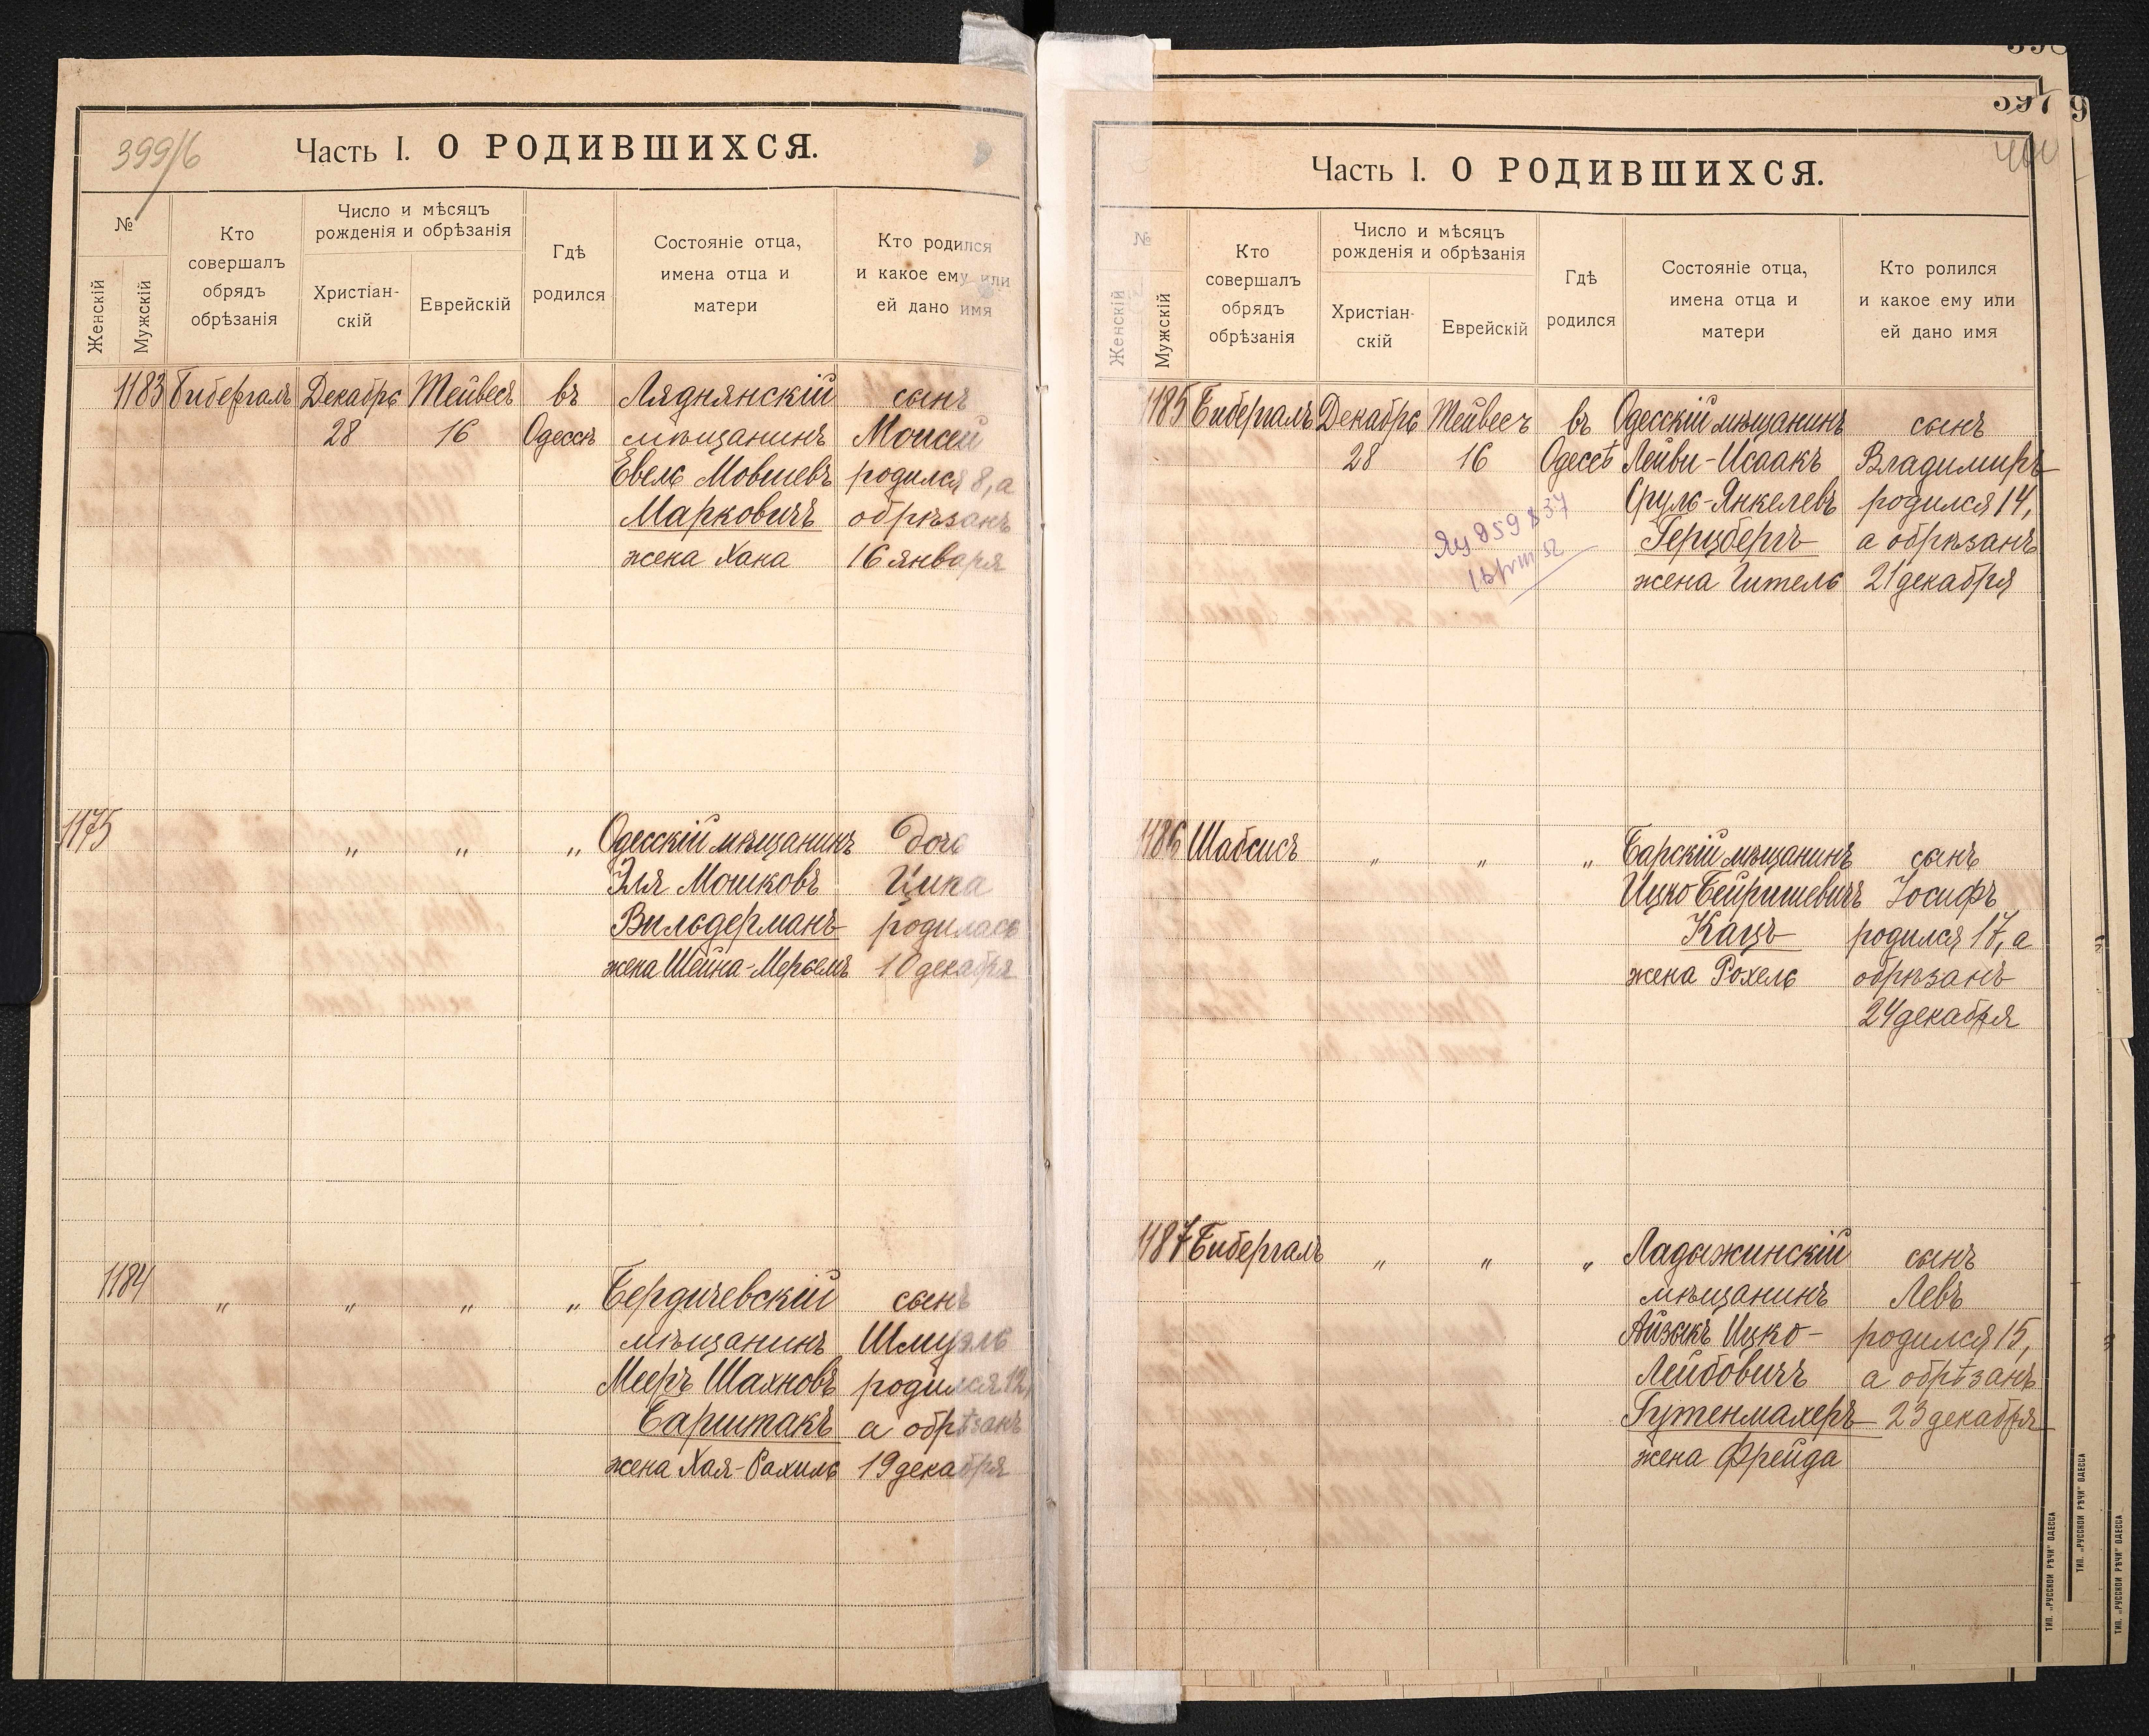 399/6
Часть I. О РОДИВШИХСЯ.
№
Женскій
Мужскій
Кто совершалъ обрядъ обрѣзанія
Число и мѣсяцъ рожденія и обрѣзанія
Христіан-скій
Еврейскій
Гдѣ родился
Состояніе отца, имена отца и матери
Кто родился и какое ему или ей дано имя
1183 Бибергалъ Декабрь Тейвесъ въ Ляднянскій сынъ
28 16 Одессѣ мѣщанинъ Моисей
Евель Мовшевъ родился 8, а
Марковичъ обрѣзанъ
жена Хана 16 января
1175 „ „ „ Одесскій мѣщанинъ дочь
Эля Мошковъ Ципа
Вильдерманъ родилась
жена Шейна-Мерьемъ 10 декабря
1184 „ „ „ „ Бердичевскій сынъ
мѣщанинъ Шмуэль
Мееръ Шахновъ родился 12,
Барштакъ а обрѣзанъ
жена Хая-Рахиль 19 декабря
397
400
Часть I. О РОДИВШИХСЯ.
№
Женскій
Мужскій
Кто совершалъ обрядъ обрѣзанія
Число и мѣсяцъ рожденія и обрѣзанія
Христіан-скій
Еврейскій
Гдѣ родился
Состояніе отца, имена отца и матери
Кто ролился и какое ему или ей дано имя
1185 Бибергалъ Декабрь Тейвесъ въ Одесскій мѣщанинъ сынъ
28 16 Одессѣ Лейви-Исаакъ Владимиръ
Сруль-Янкелевъ родился 14,
Герцбергъ а обрѣзанъ
жена Гитель 21 декабря
859837
1186 Шабсисъ „ „ „ Барскій мѣщанинъ сынъ
Ицко Бейришевичъ Іосифъ
Кацъ родился 17, а
жена Рохель обрѣзанъ
24 декабря
1187 Бибергалъ „ „ „ Ладыжинскій сынъ
мѣщанинъ Левъ
Айзыкъ Ицко- родился 15,
Лейбовичъ а обрѣзанъ
Гутенмахеръ 23 декабря
жена Фрейда
ТИП. „РУССКОЙ РѢЧИ" ОДЕССА
ТИП. „РУССКОЙ РѢЧИ" ОДЕССА
ТИП. „РУССКОЙ РѢЧИ" ОДЕССА